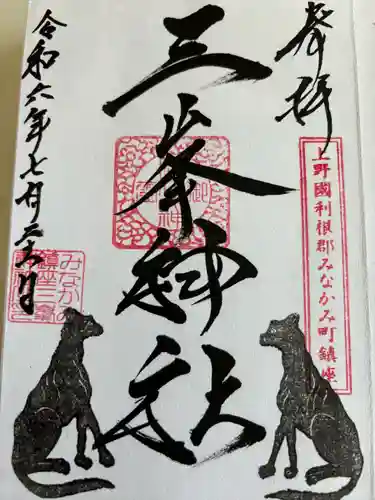 奉拝
上野國利根郡みなかみ町鎮座
三峯神社
令和六年七月二十六日